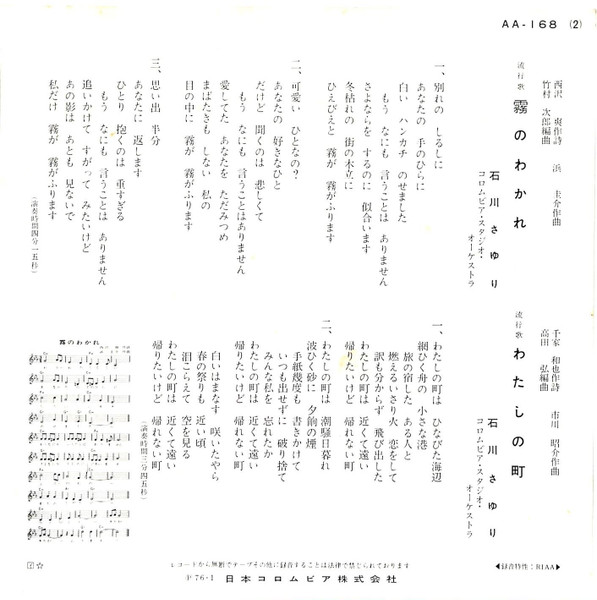 AA-168 (2)
流行歌
霧のわかれ
西沢 爽作詩
竹村 次郎編曲
浜 圭介作曲
石川さゆり
コロムビア・スタジオ・
オーケストラ
一、別れの しるしに
あなたの 手のひらに
白い ハンカチ のせました
もう なにも 言うことは ありません
さよならを するのに 似合います
冬枯れの 街の木立に
ひえびえと 霧が 霧がふります
二、可愛い ひとなの?
あなたの 好きなひと
だけど 聞くのは 悲しくて
もう なにも 言うことはありません
愛してた あなたを ただみつめ
まばたきも しない 私の
目の中に 霧が 霧がふります
三、思い出 半分
あなたに 返します
ひとり 抱くのは 重すぎる
もう なにも 言うことは ありません
追いかけて すがって みたいけど
あの影は あとも 見ないで
私だけ 霧が 霧がふります
(演奏時間四分一五秒)
流行歌
わたしの町
千家 和也作詩
高田 弘編曲
市川 昭介作曲
石川さゆり
コロムビア・スタジオ・
オーケストラ
一、わたしの町は ひなびた海辺
網ひく舟の 小さな港
旅の宿した ある人と
燃えるいさり火 恋をして
訳も分からず 飛び出した
わたしの町は 近くて遠い
帰りたいけど 帰れない町
二、わたしの町は 潮騒日暮れ
波ひく砂に 夕餉の煙
手紙幾度も 書きかけて
いつも出せずに 破り捨て
みんな私を 忘れたか
わたしの町は 近くて遠い
帰りたいけど 帰れない町
白いはまなす 咲いたやら
春の祭りも 近い頃
泪こらえて 空を見る
わたしの町は 近くて遠い
帰りたいけど 帰れない町
(演奏時間三分四五秒)
霧のわかれ
レコードから無断でテープその他に録音することは法律で禁じられております
Ⓟ76・1 日本コロムビア株式会社
◀録音特性:RIAA▶